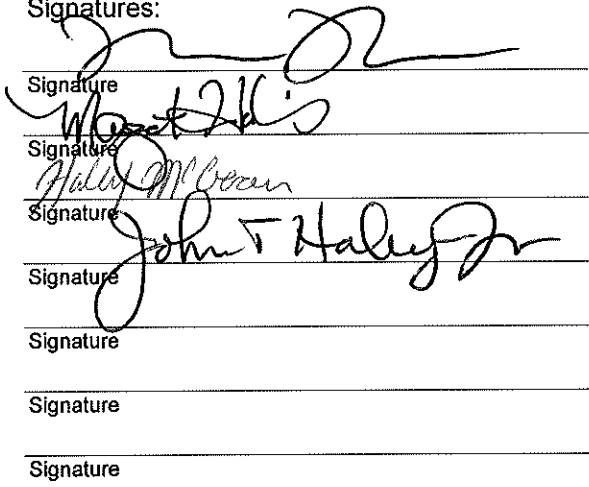 Signatures:
Signature
Signature
Haley McGeean
Signature
John T Haley Jr
Signature
Signature
Signature
Signature